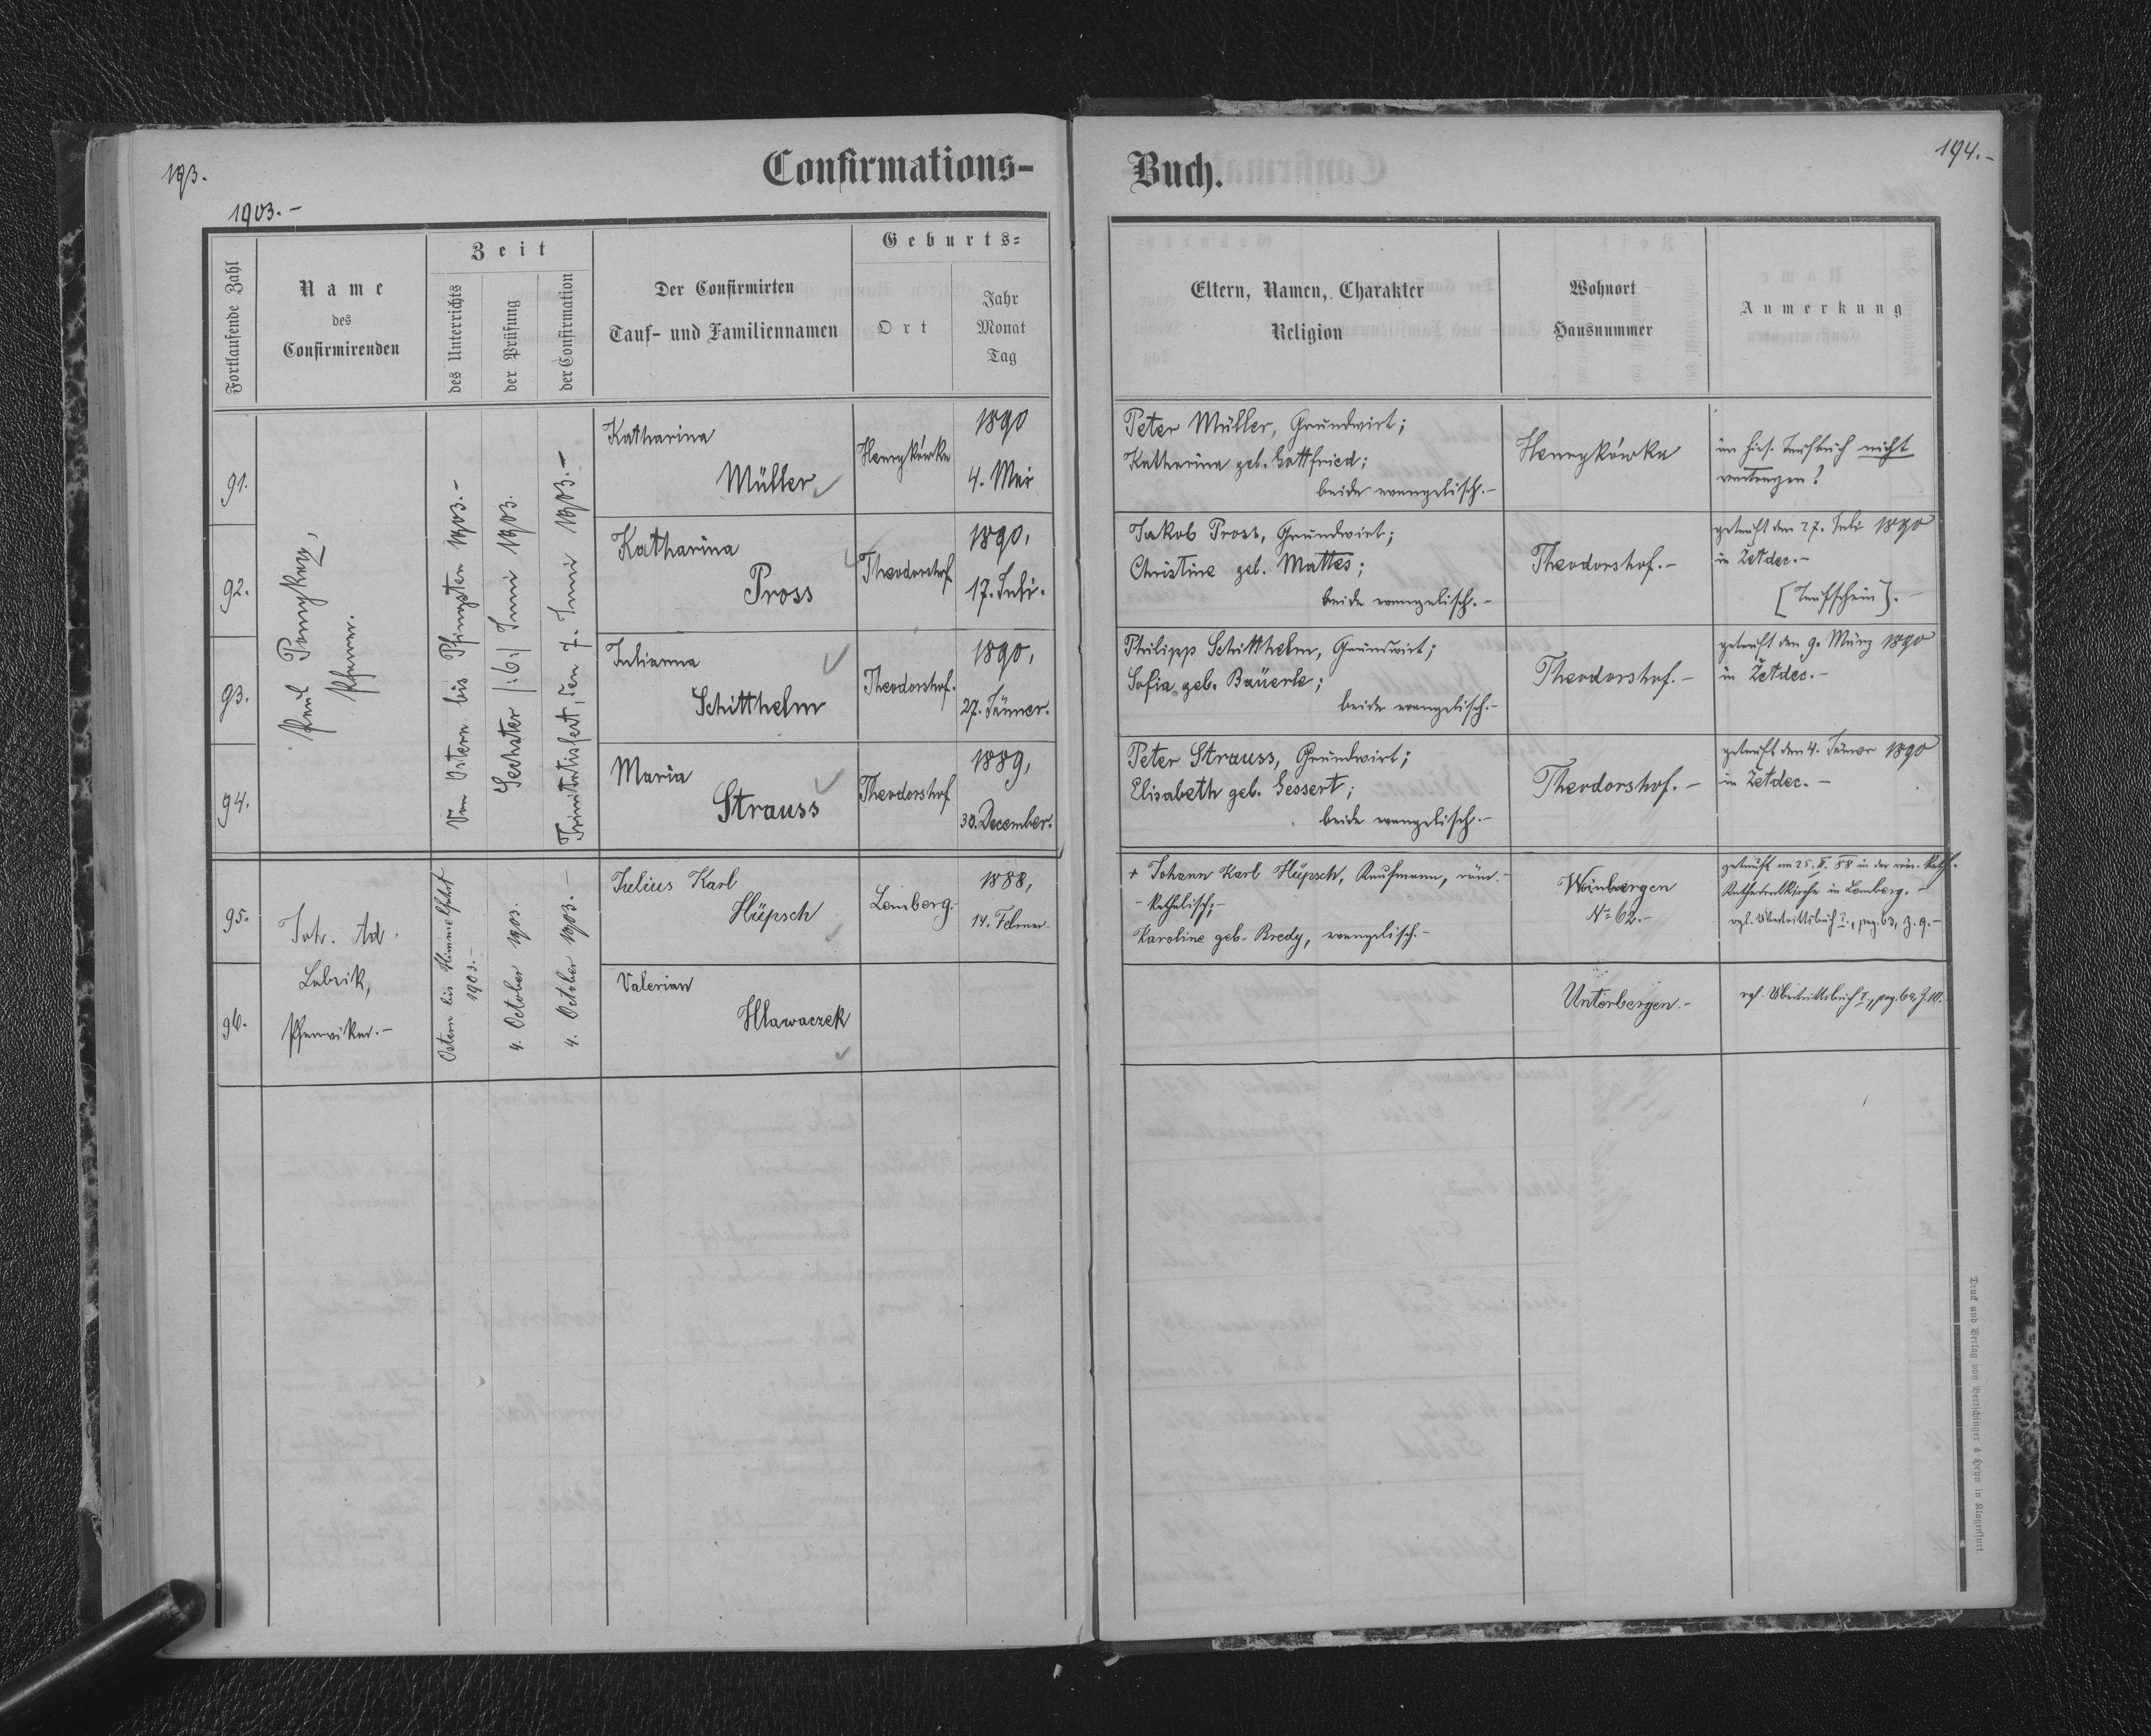 193.
Confirmations-
1903.-
Fortlaufende Zahl
Name
des
Confirmirenden
Zeit
des Unterrichts
der Prüfung
der Confirmation
Der Confirmirten
Tauf- und Familiennamen
Geburts-
Ort
Jahr
Monat
Tag
Pfarrer.
Von Ostern bis Pfingsten 1903.-
Sechster /:6:/ Juni 1903.
Trinitatisfest, den 7. Juni 1903.-
91.
Katharina
Müller
Henrykówka
1890
4. Mai
92.
Katharina
Pross
Theodorshof
1890,
17. Juli.
93.
Julianna
Schitthelm
Theodorshof.
1890,
27. Jänner.
94.
Maria
Strauss
Theodorshof
1889,
30. December.
Joh. Ad.
Pfarrvikar.-
Ostern bis Himmelfahrt
1903.-
4. October 1903.
4. October 1903.-
95.
Julius Karl
Hüpsch
Lemberg.-
1888,
14. Februar.
96.
Valerian
Hlawaczek
Buch.
194.-
Eltern, Namen, Charakter
Religion
Wohnort
Hausnummer
Anmerkung
Peter Müller, Grundwirt;
Katharina geb. Gottfried;
beide evangelisch.-
Henrykówka
im hies. Taufbuch nicht
eingetragen?
Jakob Pross, Grundwirt;
Christine geb. Mattes;
beide evangelisch.-
Theodorshof.-
getauft den 27. Juli 1890
in Żeldec.-
[Taufschein].-
Philipp Schitthelm, Grundwirt;
Sofia geb. Bäuerle;
beide evangelisch.-
Theodorshof.-
getauft den 9. März 1890
in Żeldec.-
Peter Strauss, Grundwirt;
Elisabeth geb. Gessert;
beide evangelisch.-
Theodorshof.-
getauft den 4. Jänner 1890
in Żeldec.-
+ Johann Karl Hüpsch, Kaufmann, röm.-
-katholisch;-
Karoline geb. Bredy, evangelisch.-
Weinbergen
No 62.-
getauft am 25. II. 88 in der röm. kath.
Kathedralkirche in Lemberg.-
vgl. Übertrittsbuch I., pag. 63, Z. 9.-
Unterbergen.-
vgl. Übertrittsbuch I., pag. 64, Z. 10.-
Druck und Verlag von Bertschinger & Heyn in Klagenfurt.